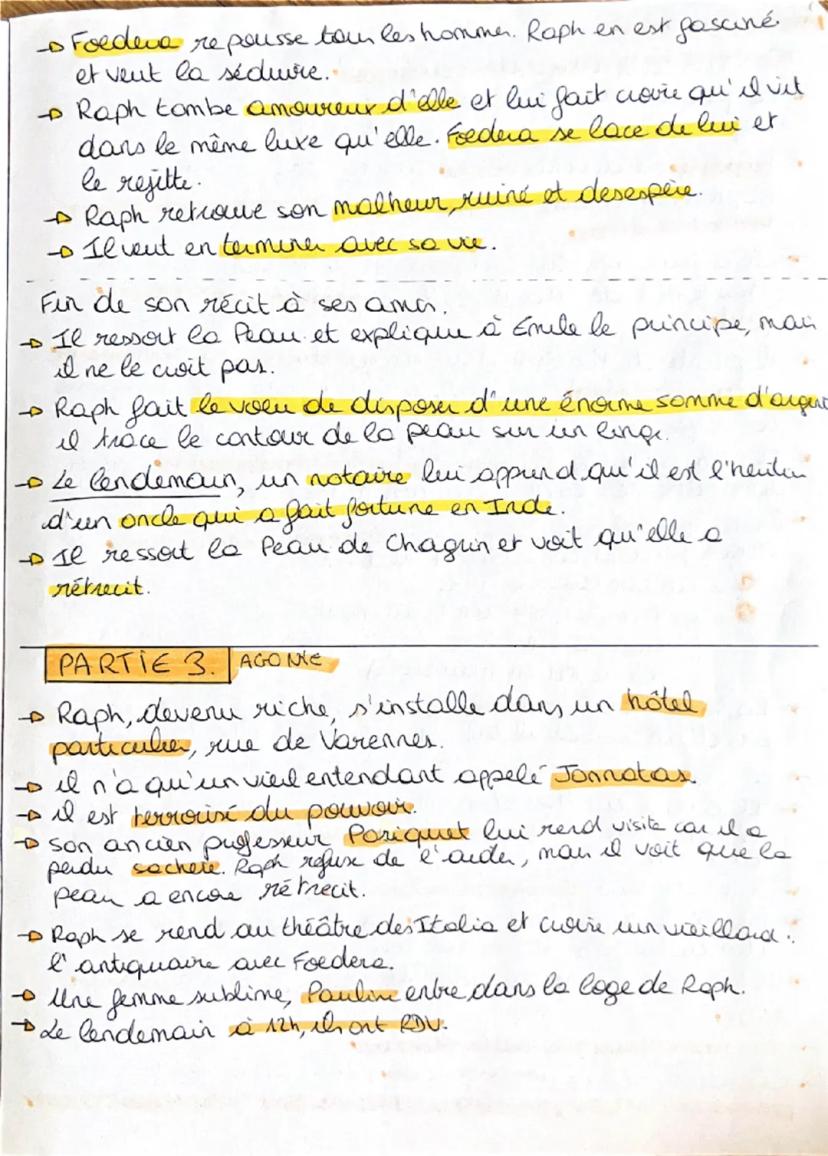 → Foedera repousse tous les hommes. Raph en est fasciné
et veut la séduire.
→ Raph tombe amoureux d'elle et lui fait croire qu'il vit
dans le même luxe qu'elle. Foedera se lace de lui et
le rejitte.
→ Raph retrouve son malheur, ruiné et desespère.
→ Il veut en terminer avec sa vie.
Fin de son récit à ses amis.
→ Il ressort la Peau et explique à Émile le principe, mais
il ne le croit pas.
→ Raph fait le voeu de disposer d'une énorme somme d'argent
il trace le contour de la peau sur un linge.
→ Le lendemain, un notaire lui apprend qu'il est l'héritier
d'un oncle qui a fait fortune en Inde.
→ Il ressort la Peau de Chagrin et voit qu'elle a
rétrecit.
PARTIE 3. AGONIE
→ Raph, devenu riche, s'installe dans un hôtel
particulier, rue de Varennes.
→ il n'a qu'un vieil entendant appelé Jonnatas.
→ il est terrorisé du pouvoir.
→ son ancien professeur Poriquet lui rend visite car il a
perdu sachere. Raph refuse de l'aider, mais il voit que la
peau a encore rétrecit.
→ Raph se rend au théâtre des Italia et croise un vieillard :
l'antiquaire avec Foedera.
→ Une femme sublime, Pauline entre dans la loge de Raph.
→ Le lendemain à 12h, ils ont RDV.